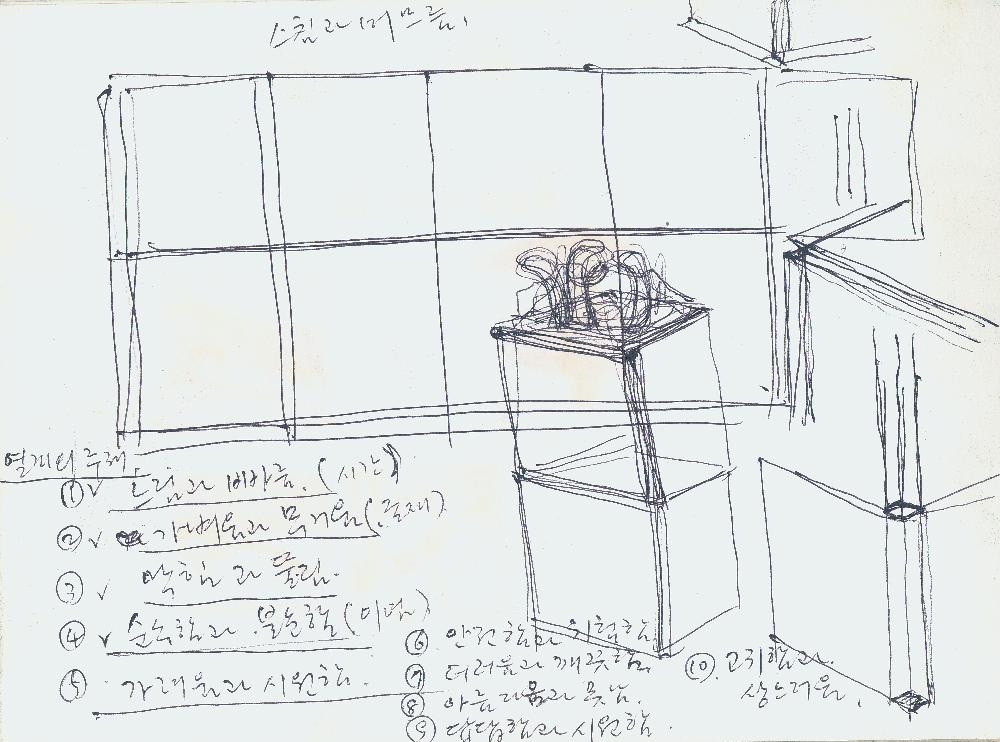 스침과 머므름,
열개의 주제
① ✓ 느림과 빠름. (시간)
② ✓ 가벼움과 무거움 (존재)
③ ✓ 막힘과 뚫림.
④ ✓ 순수함과 불순함 (이념)
⑤ 가려움과 시원함.
⑥ 안전함과 위험함
⑦ 더러움과 깨끗함.
⑧ 아름다움과 못남.
⑨ 답답함과 시원함.
⑩ 고귀함과
상스러움.